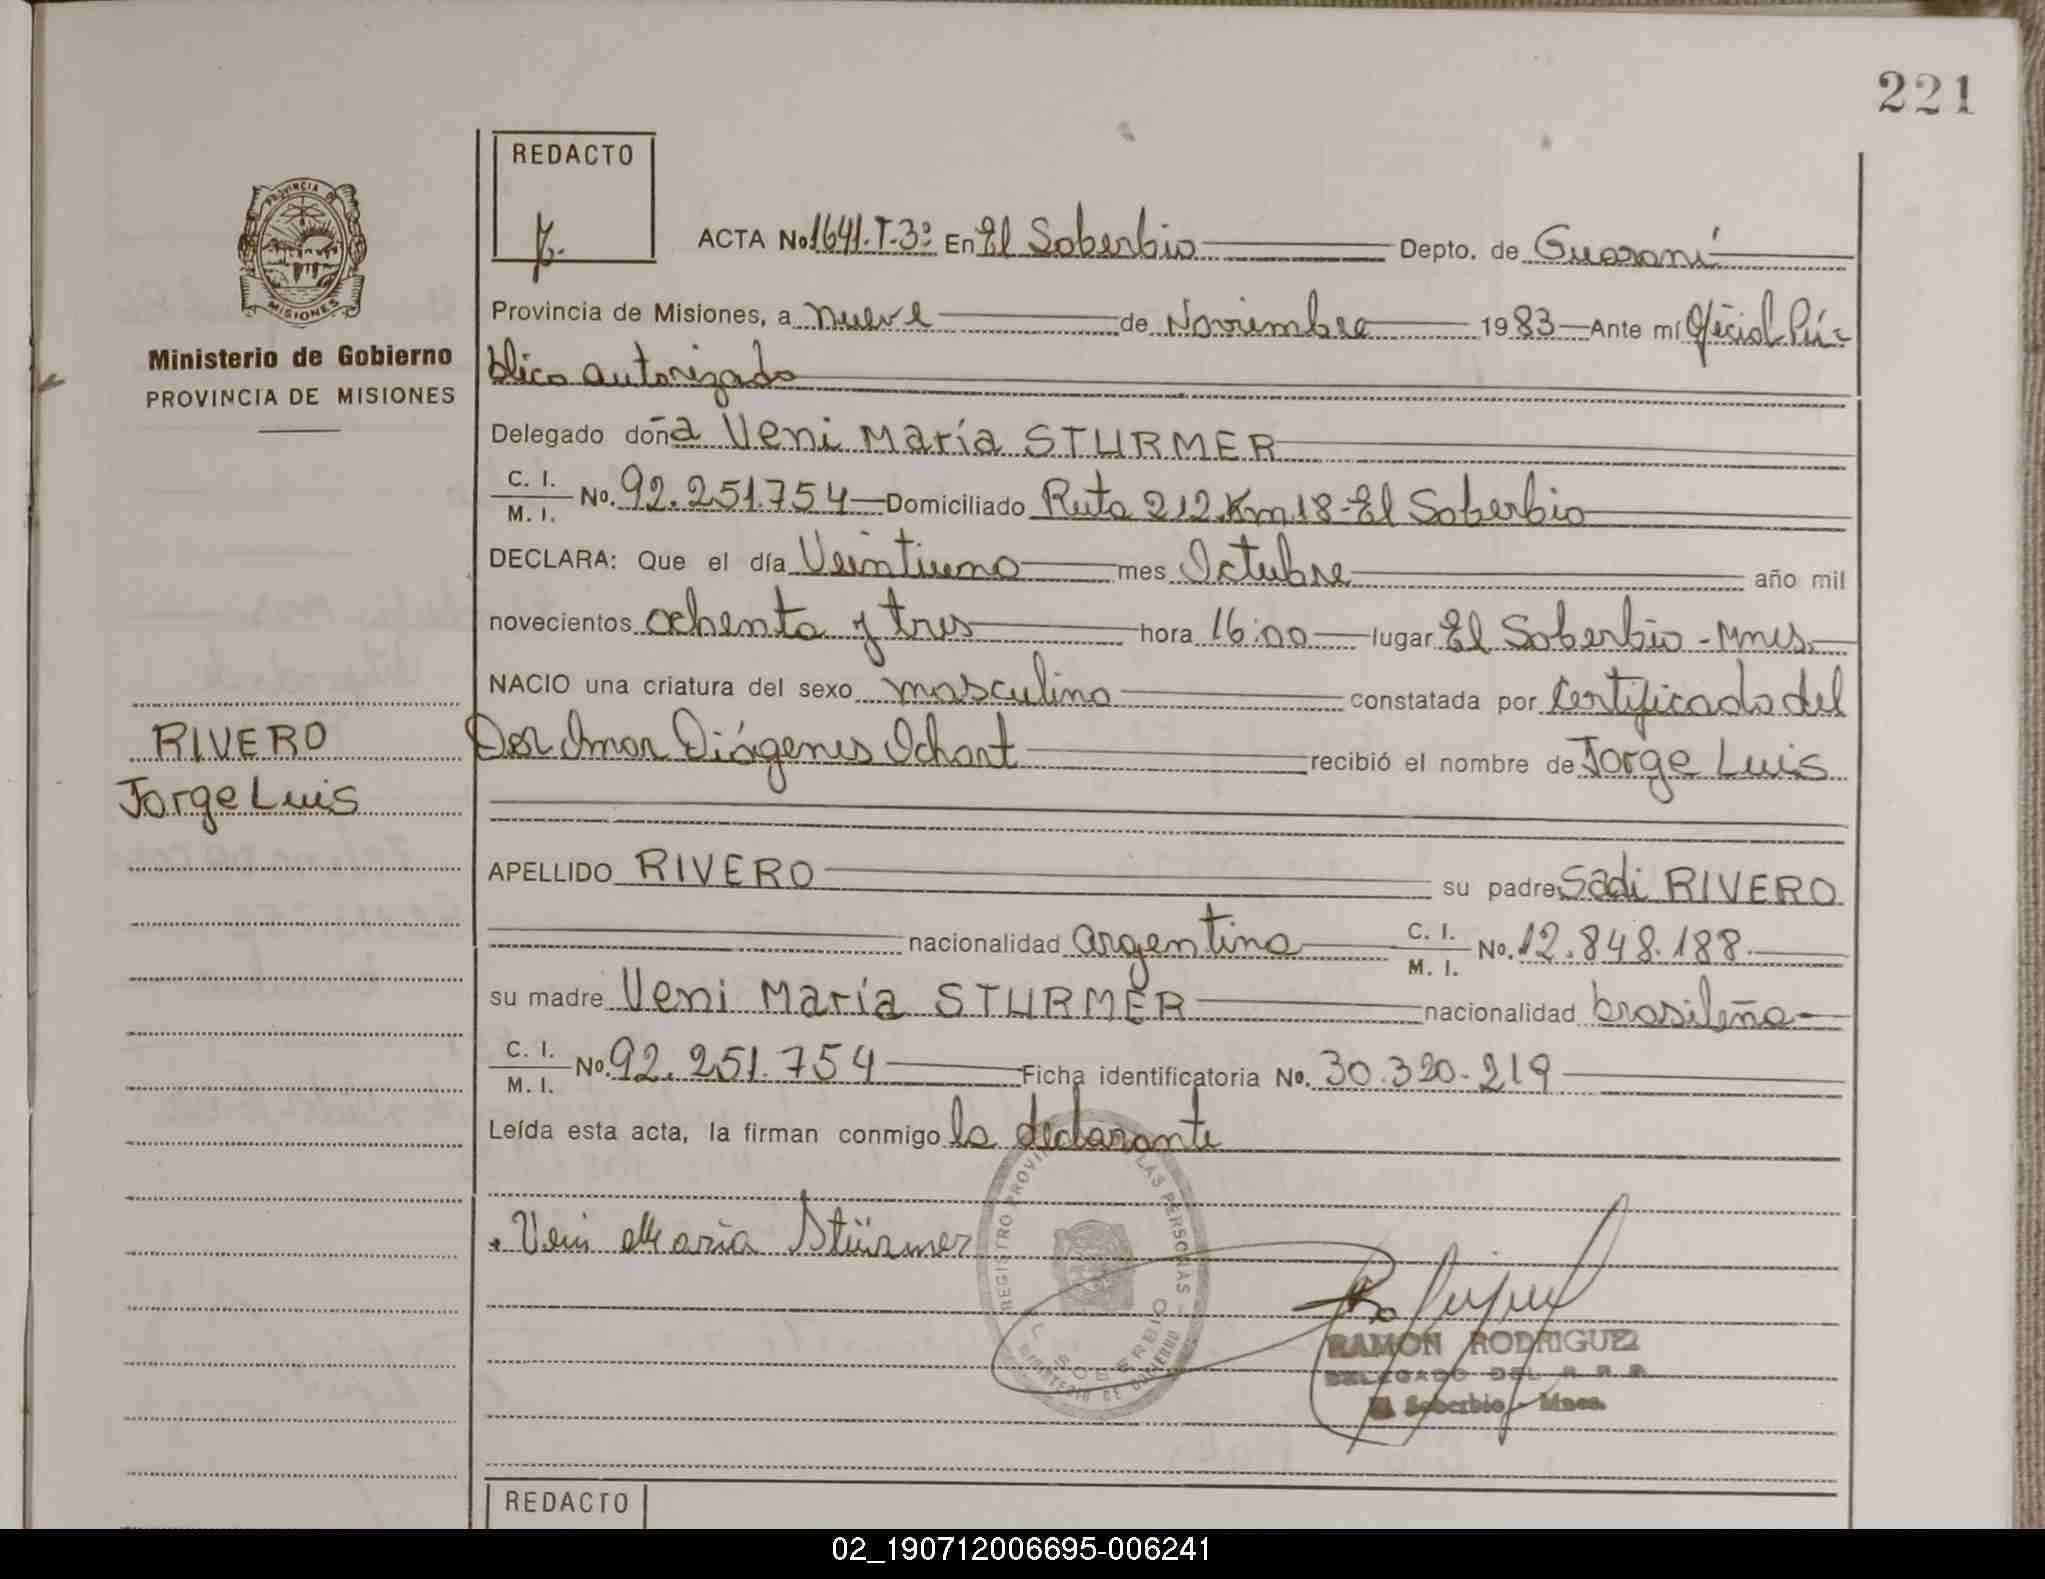 221
REDACTO
PROVINCIA DE
MISIONES
Ministerio de Gobierno
PROVINCIA DE MISIONES
RIVERO
Jorge Luis
ACTA No 1641.T-3º En El Soberbio Depto. de Guaraní
Provincia de Misiones, a nueve de Noviembre 1983 Ante mí Oficial Pú-
blico autorizado
Delegado doña Veni María STURMER
C. I. / M. I. No. 92.251.754 Domiciliado Ruta 212 Km 18-El Soberbio
DECLARA: Que el día Veintiuno mes Octubre año mil
novecientos ochenta y tres hora 16:00 lugar El Soberbio - Mnes.
NACIO una criatura del sexo masculino constatada por Certificado del
Dor Omar Diógenes Ochant recibió el nombre de Jorge Luis
APELLIDO RIVERO su padre Sadi RIVERO
nacionalidad argentina C. I. / M. I. No. 12.848.188
su madre Veni María STURMER nacionalidad brasileña
C. I. / M. I. No. 92.251.754 Ficha identificatoria No. 30.320.219
Leída esta acta, la firman conmigo la declarante
Veni Maria Stürmer
REGISTRO LAS PERSONAS
SOBERBIO
MINISTERIO DE GOBIERNO
RAMON RODRIGUEZ
DELEGADO DEL R. R. P.
El Soberbio - Mnes.
REDACTO
02_190712006695-006241